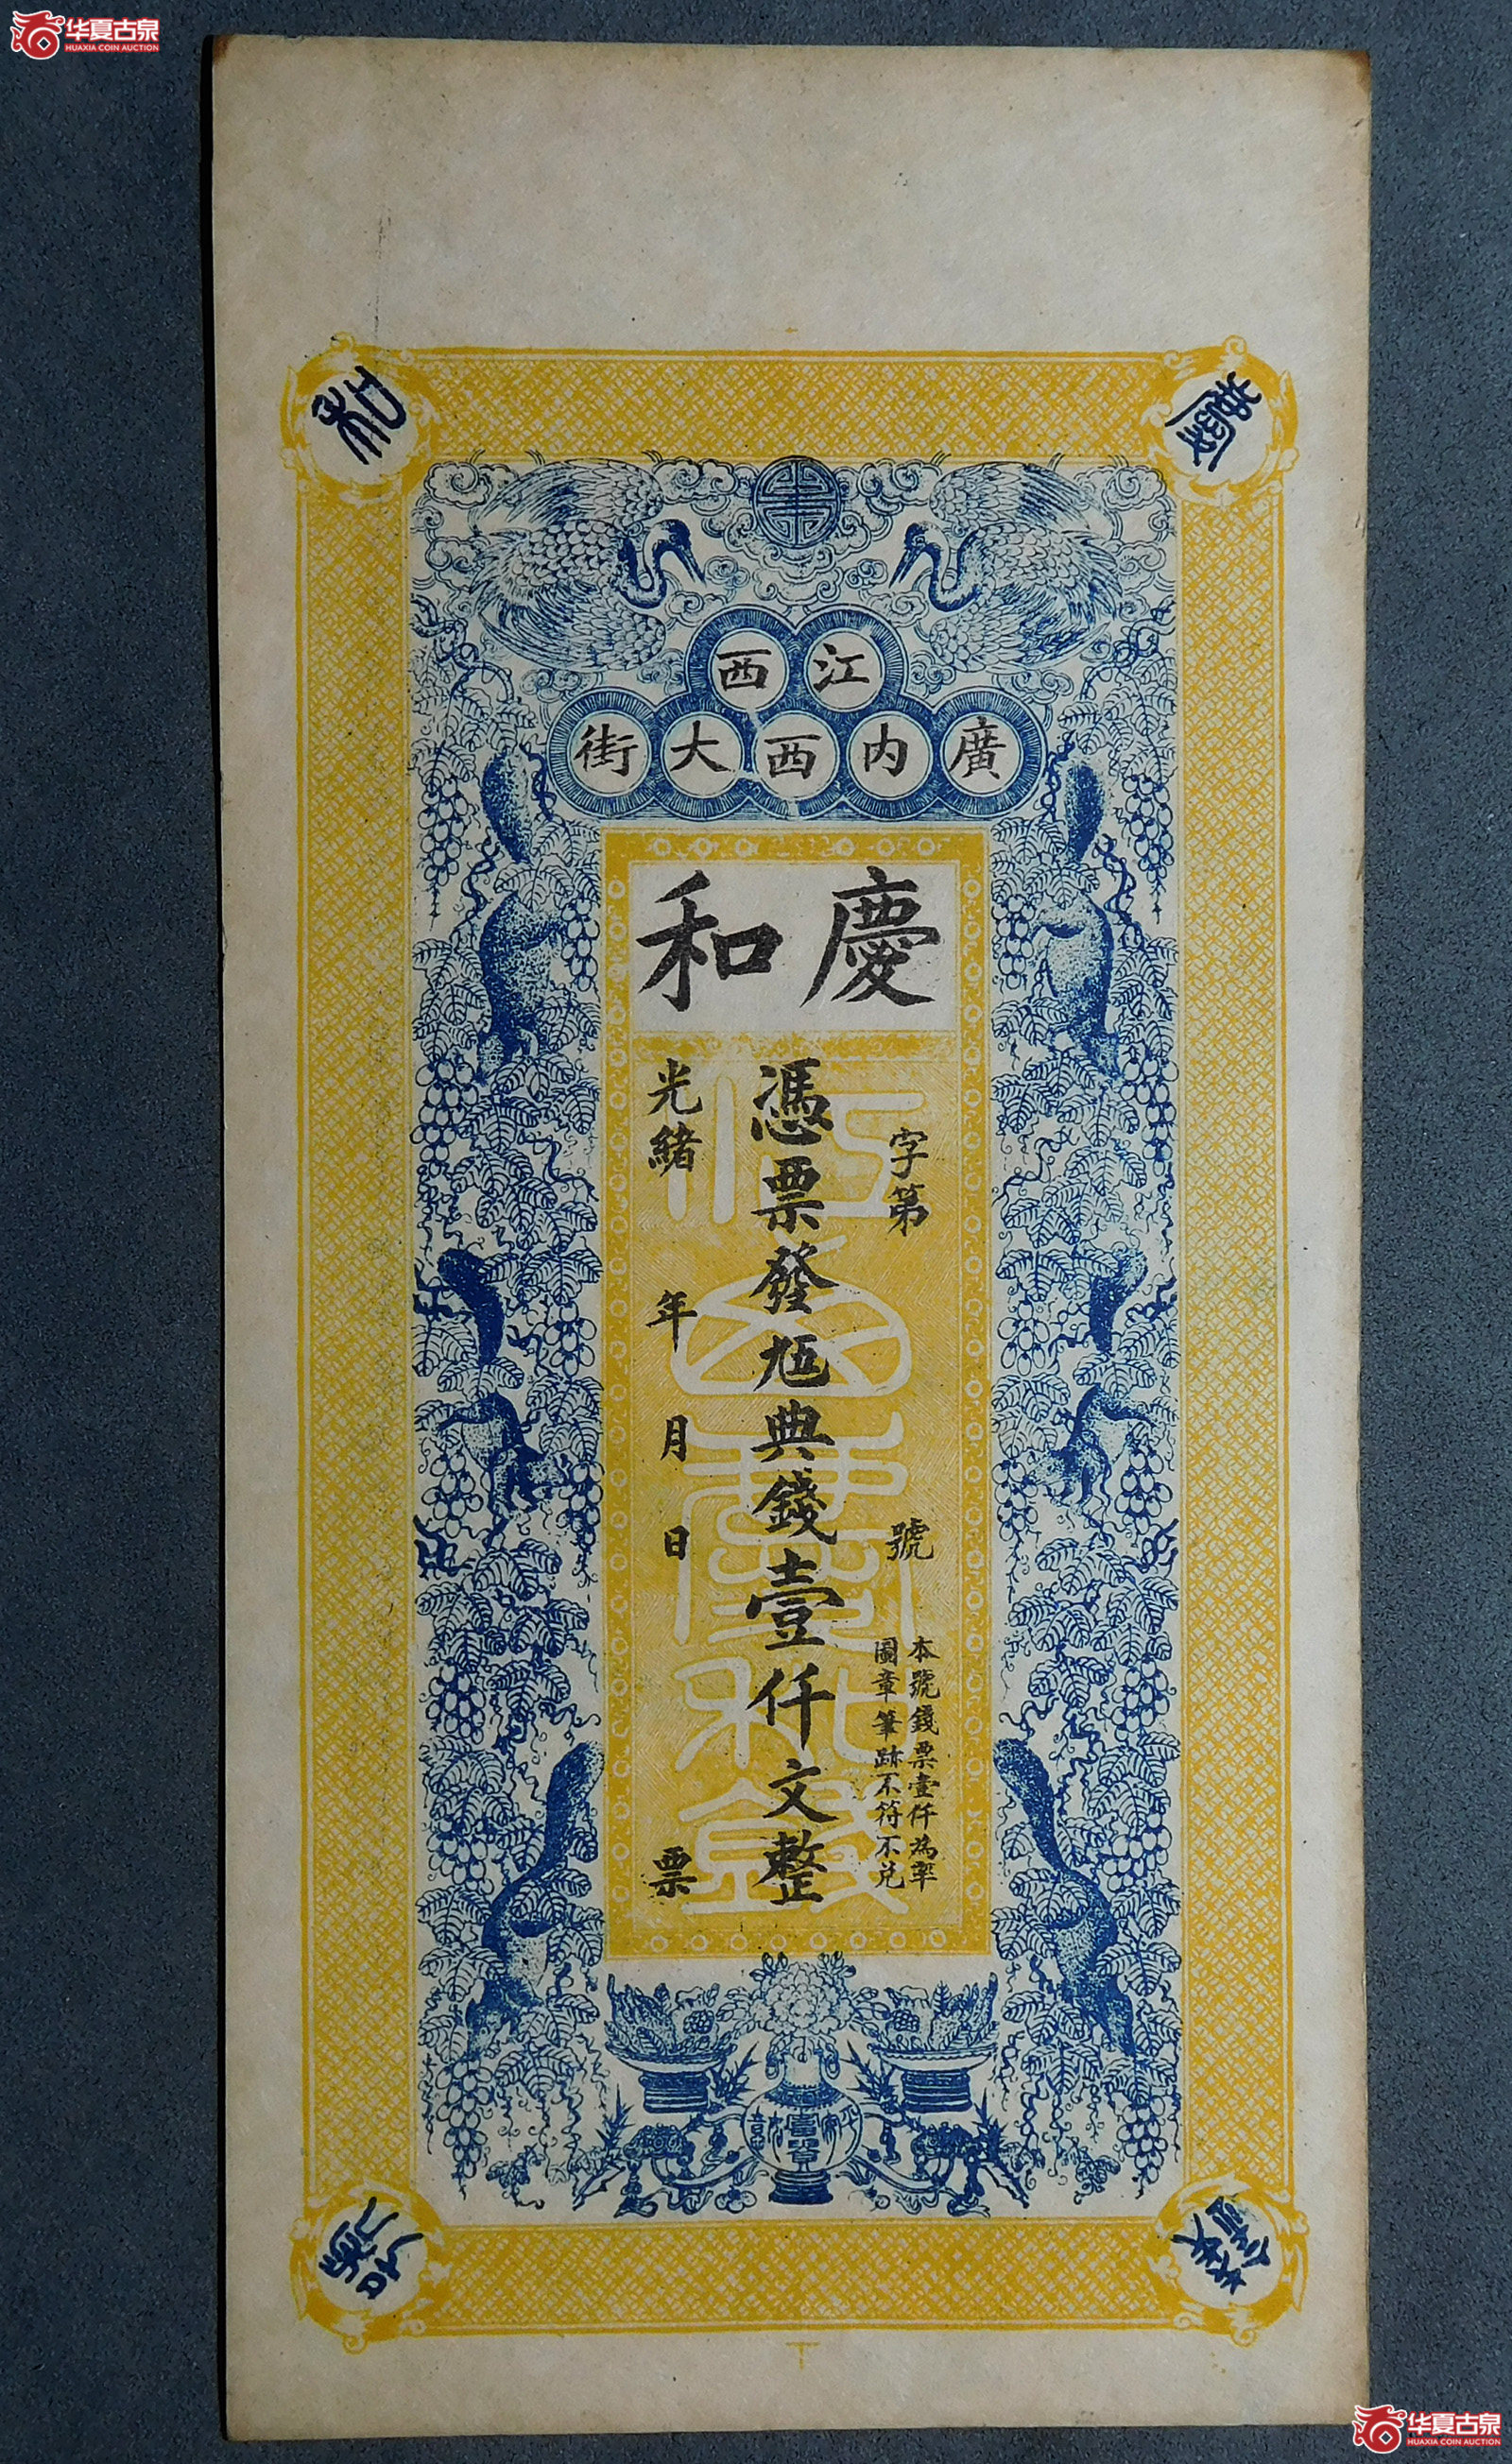 华夏古泉
HUAXIA COIN AUCTION
慶
和
江西
廣内西大街
慶和
字第 號
本號錢票壹仟為率
圖章筆跡不符不兌
憑票發九五典錢壹仟文整
光緒 年 月 日 票
江西慶和錢
錢
號
华夏古泉
HUAXIA COIN AUCTION